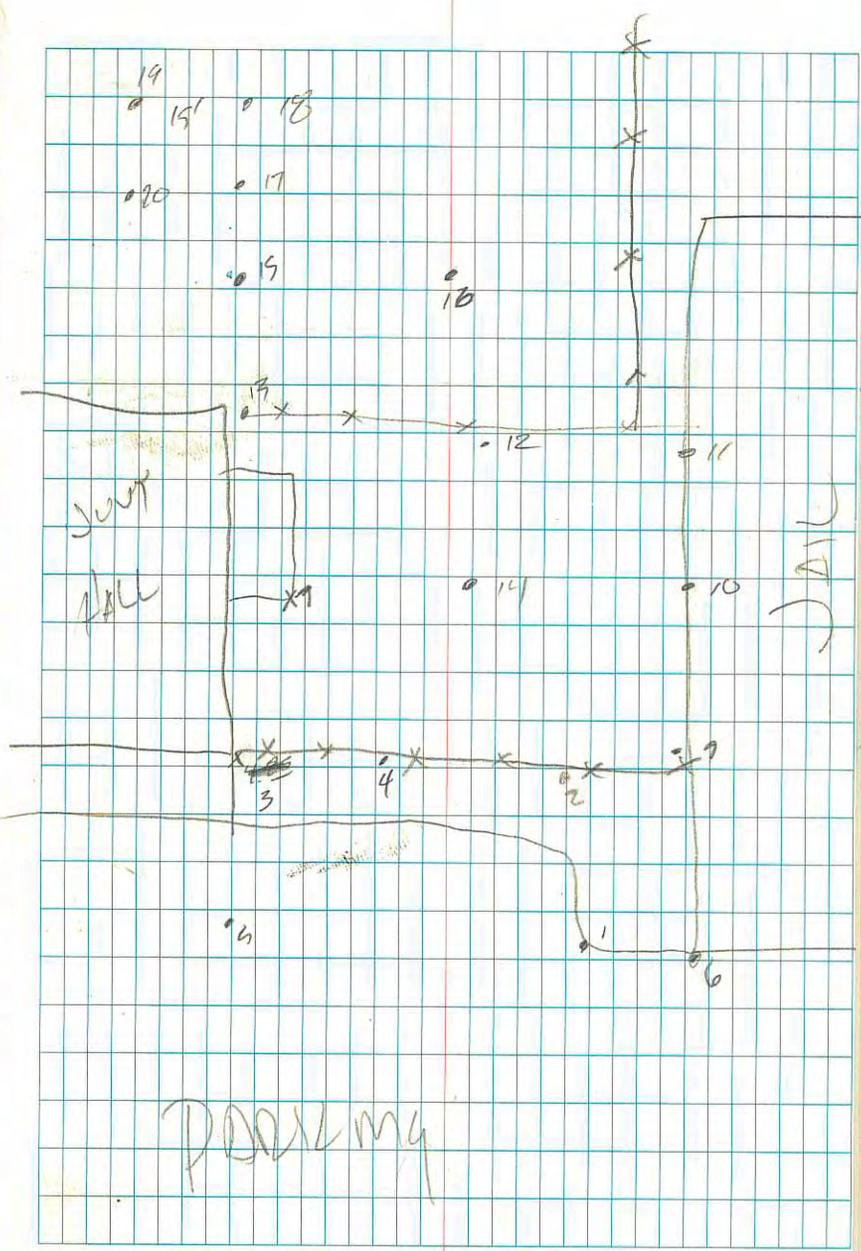 19
15'
18
20
17
15
16
13
12
11
JUVY
HALL
14
10
JAIL
9
4
3
2
5
1
6
PARKING